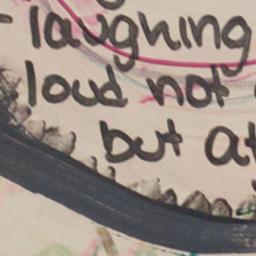 - laughing
loud not
but at